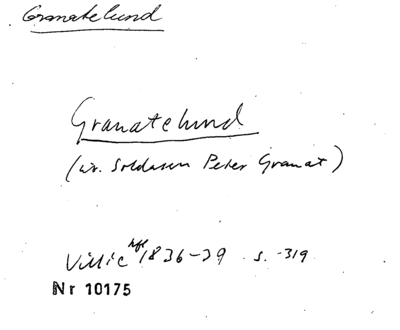 Granatelund
Granatelund
(av. Soldaten Peter Granat)
Villie hfl 1836-39 s. 319
Nr 10175